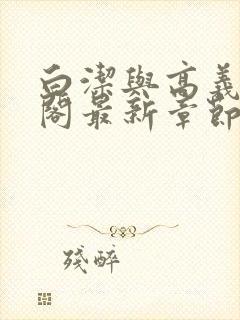 白潔與高義
閣最新章節
殘醉